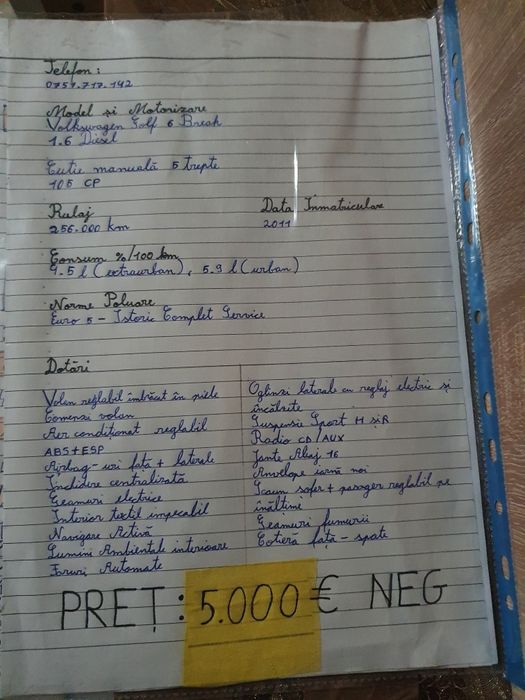 Telefon:
0757.717.142
Model și Motorizare
Volkswagen Golf 6 Break
1.6 Diesel
Cutie manuală 5 trepte
105 CP
Rulaj
256.000 km
Data Înmatriculare
2011
Consum %/100 km
4.5 l (extraurban), 5.9 l (urban)
Norme Poluare
Euro 5 - Istoric Complet Service
Dotări
Volan reglabil îmbrăcat în piele
Comenzi volan
Aer condiționat reglabil
ABS+ESP
Airbag-uri față + laterale
Închidere centralizată
Geamuri electrice
Interior textil impecabil
Navigare Activă
Lumini Ambientale interioare
Faruri Automate
Oglinzi laterale cu reglaj electric și
încălzite
Suspensie Sport H și R
Radio CD/AUX
Jante Aliaj 16
Anvelope iarnă noi
Scaun șofer + pasager reglabil pe
înălțime
Geamuri fumurii
Cotieră față - spate
PREȚ: 5.000 € NEG